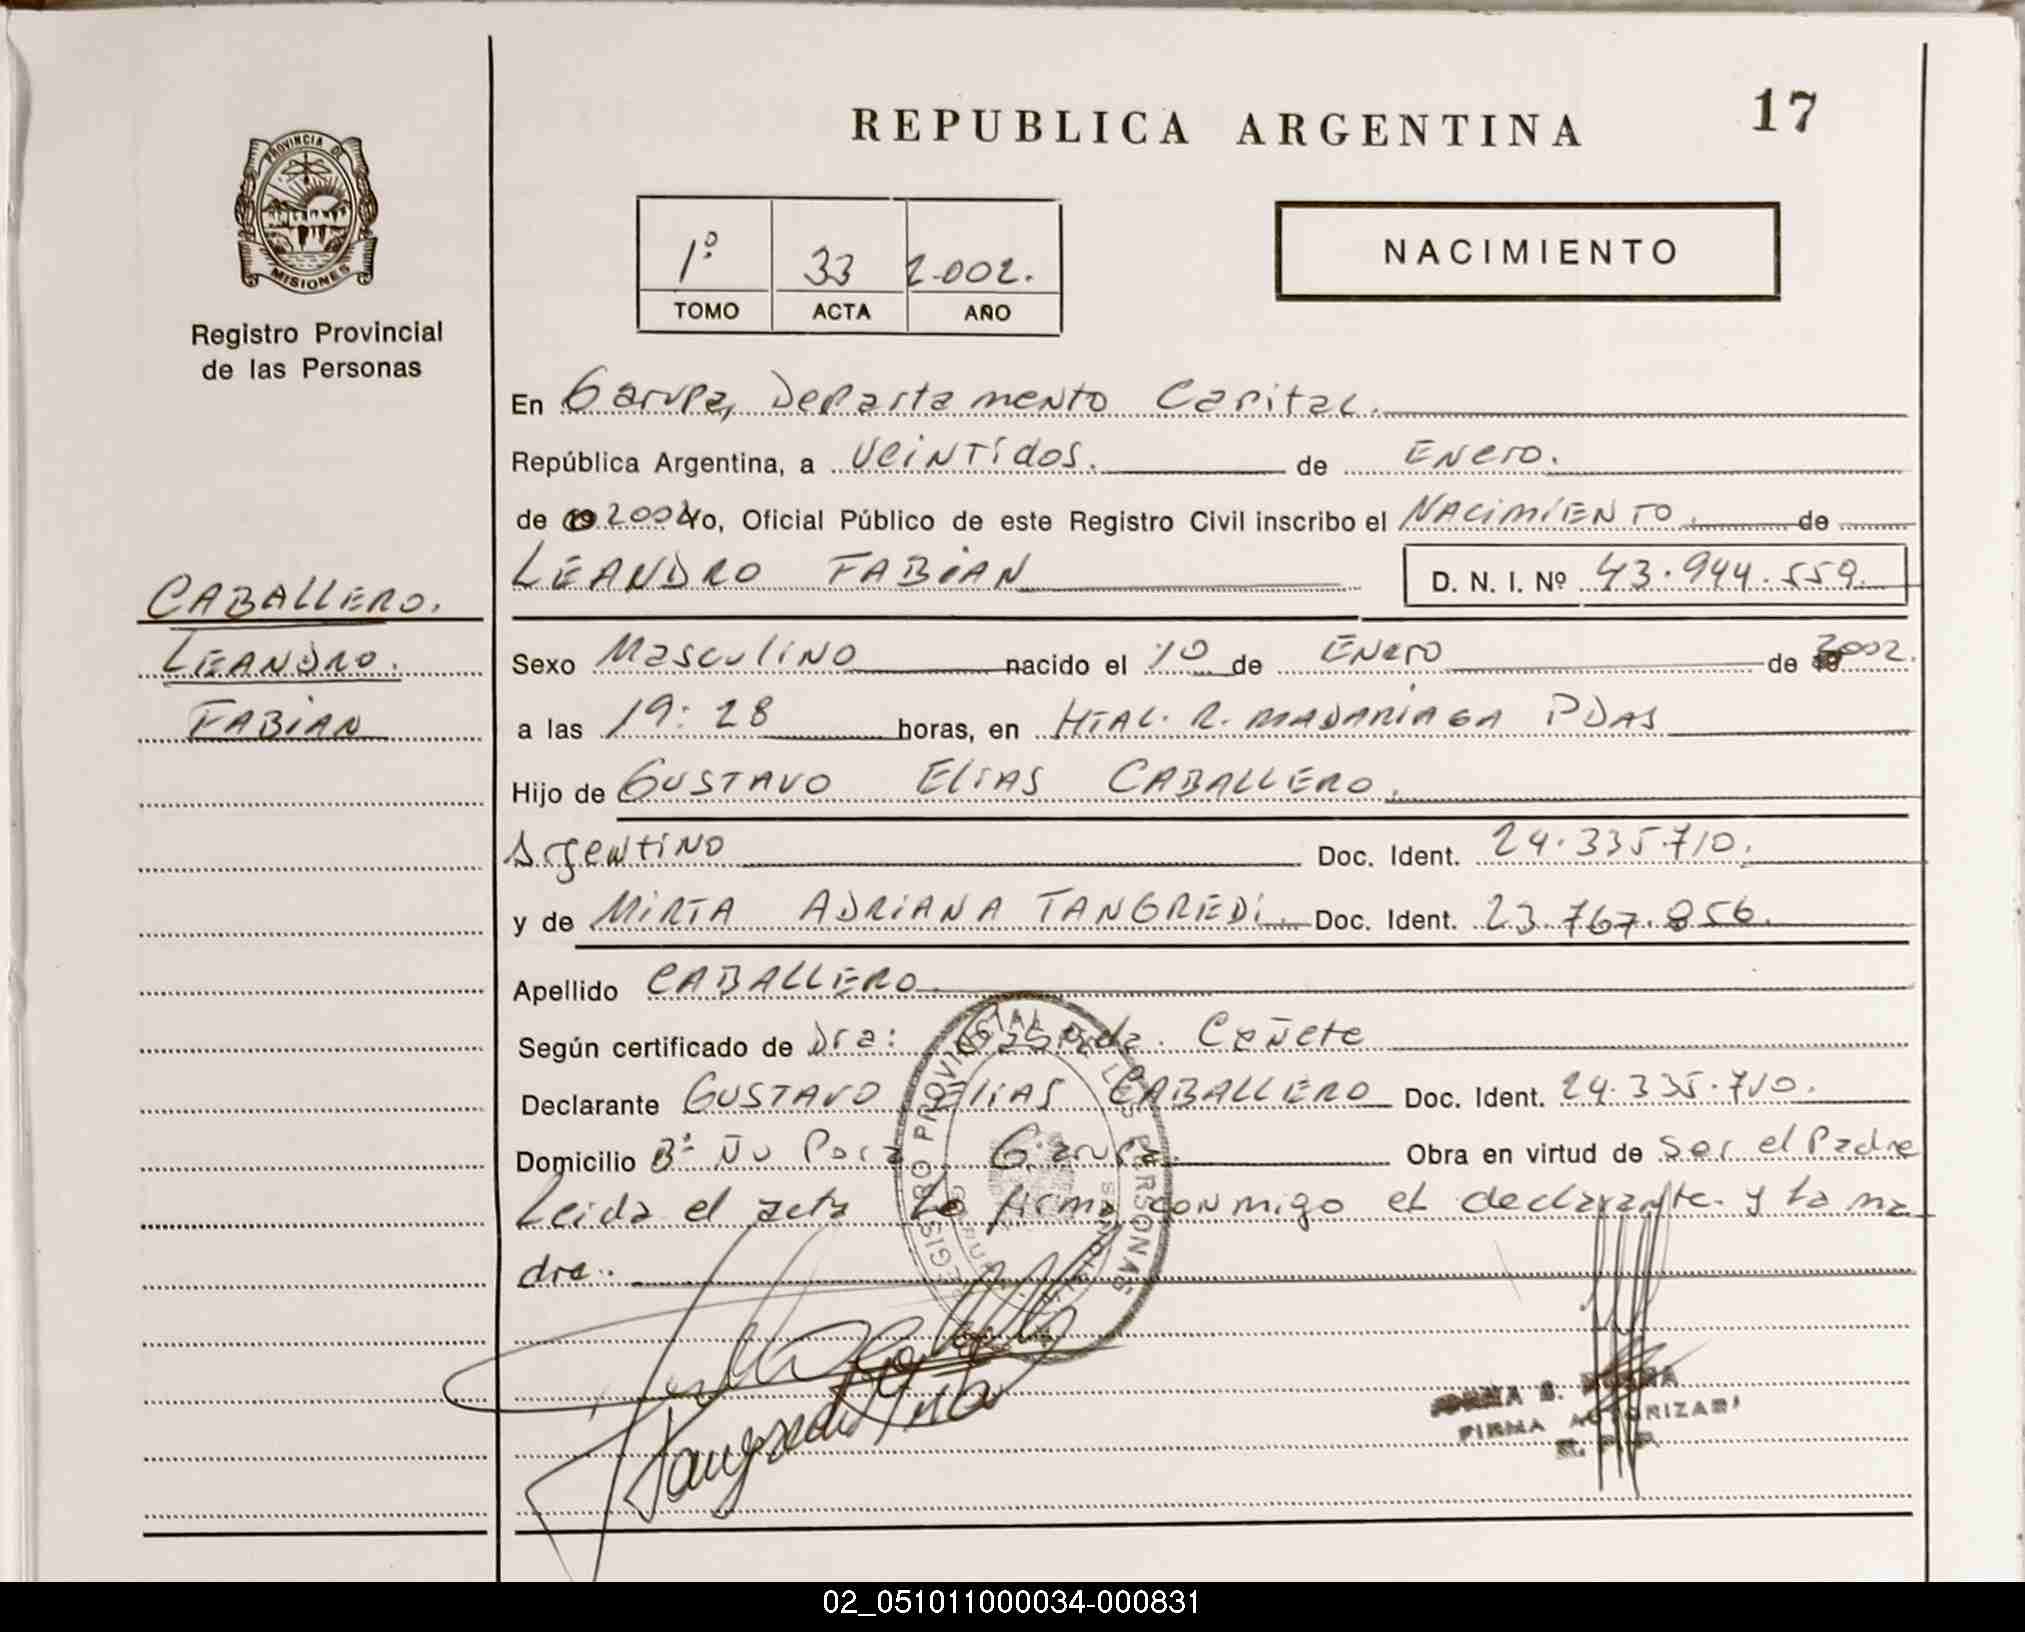 REPUBLICA ARGENTINA
17
PROVINCIA DE
MISIONES
Registro Provincial
de las Personas
1º 33 2.002.
TOMO ACTA AÑO
NACIMIENTO
En Garupa, Departamento Capital.
República Argentina, a Veintidos. de Enero.
de 2002 Yo, Oficial Público de este Registro Civil inscribo el NACIMIENTO. de
LEANDRO FABIAN D. N. I. Nº 43.944.559.
CABALLERO.
LEANDRO.
FABIAN
Sexo Masculino nacido el 10 de Enero de 2002.
a las 19:28 horas, en HTAL. R. MADARIAGA PDAS
Hijo de GUSTAVO ELIAS CABALLERO.
Argentino Doc. Ident. 24.335.710.
y de MIRTA ADRIANA TANGREDI. Doc. Ident. 23.767.856.
Apellido CABALLERO.
Según certificado de Dra: Cañete
Declarante GUSTAVO ELIAS CABALLERO Doc. Ident. 24.335.710.
Domicilio Bº Ñu Pora Garupa. Obra en virtud de Ser el Padre
Leida el acta la firma conmigo el declarante. y la ma
dre.
REGISTRO PROVINCIAL DE LAS PERSONAS
MISIONES
Tangredi Mirta
FIRMA AUTORIZADA
02_051011000034-000831